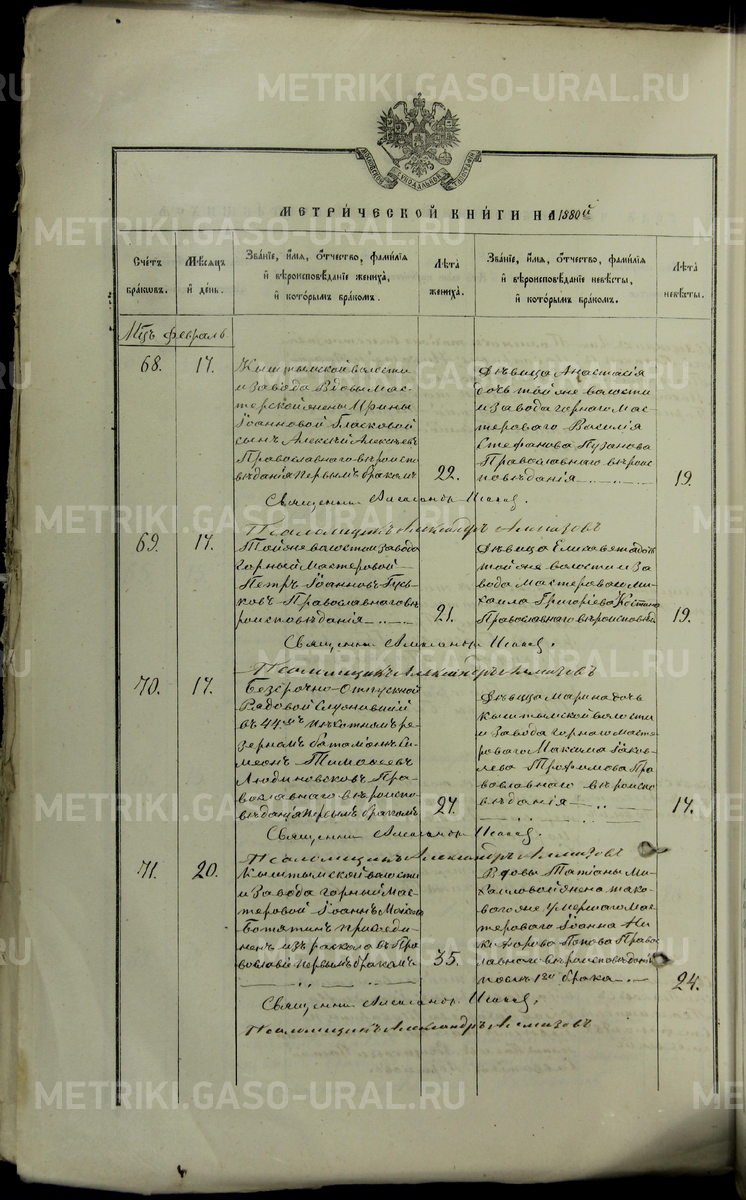 METRIKI.GASO-URAL.RU
МЕТРИ́ЧЕСКОЙ КНИ́ГИ НА 1880й
Сче́тъ бра́ковъ.
Мѣ́сяцъ и҆ де́нь.
Зва́нїе, и҆́мя, ѻ҆́тчество, фами́лїя и҆ вѣроисповѣ́данїе жениха̀, и҆ кото́рымъ бра́комъ.
Лѣ́та жениха̀.
Зва́нїе, и҆́мя, ѻ҆́тчество, фами́лїя и҆ вѣроисповѣ́данїе невѣ́сты, и҆ кото́рымъ бра́комъ.
Лѣ́та невѣ́сты.
Мцъ Февраль.
68.
17.
Кыштымской волости
и завода Вдовы мас-
терской жены Ирины
Іоанновой Гласковой
сынъ Алексѣй Алексѣевъ
Православнаго вѣроиспо
вѣданія первымъ бракомъ
22.
Дѣвица Анастасія
дочь той же волости
и завода горнаго мас
тероваго Василія
Стефанова Пузанова
Православнаго вѣроис
повѣданія
19.
Священникъ Александръ
Псаломщикъ Александръ Алмазовъ
69.
17.
Той же волости и завода
горный мастеровой
Петръ Іоанновъ Гусь-
ковъ Православнаго вѣ
роисповѣданія
21.
Дѣвица Елизавета дочь
той же волости и за
вода мастероваго Ми-
хаила Григоріева Костина
Православнаго вѣроисповѣд
19.
Священникъ Александръ
Псаломщикъ Александръ Алмазовъ
70.
17.
Безсрочно-Отпускной
Рядовой Служившій
въ 44мъ пѣхотномъ ре-
зервномъ баталіонѣ Си-
меонъ Тимоѳеевъ
Людиновсковъ Пра-
вославнаго вѣроиспо-
вѣданія первымъ бракомъ
27.
Дѣвица Марина дочь
Кыштымской волости
и завода горнаго масте-
роваго Максима Іаков-
лева Трофимова Пра
вославнаго вѣроиспо
вѣданія
17.
Священникъ Александръ
Псаломщикъ Александръ Алмазовъ
71.
20.
Кыштымской волости
и завода горный мас-
теровой Іоаннъ
Ботятинъ присоеди-
ненъ изъ раскола въ Пра
вославіе первымъ бракомъ
35.
Вдовы Татіаны Ми-
хайловой жена тако-
вого же умершаго мас-
тероваго Іоанна Ни-
кифорова Попова Право
славнаго вѣроисповѣданія
послѣ 1го брака
24.
Священникъ Александръ
Псаломщикъ Александръ Алмазовъ